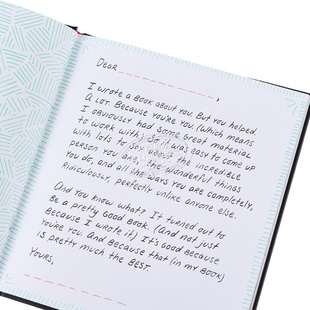 Dear
,
I wrote a book about you. But you helped.
A lot. Because you're you. (Which means
I obviously had some great material
to work with.) So it was easy to come up
with lots to say about the incredible
person you are, the wonderful things
you do, and all the ways you are completely,
ridiculously, perfectly unlike anyone else.
And you know what? It turned out to
be a pretty good book. (And not just
because I wrote it.) It's good because
you're you. And because that (in my book)
is pretty much the best.
Yours,